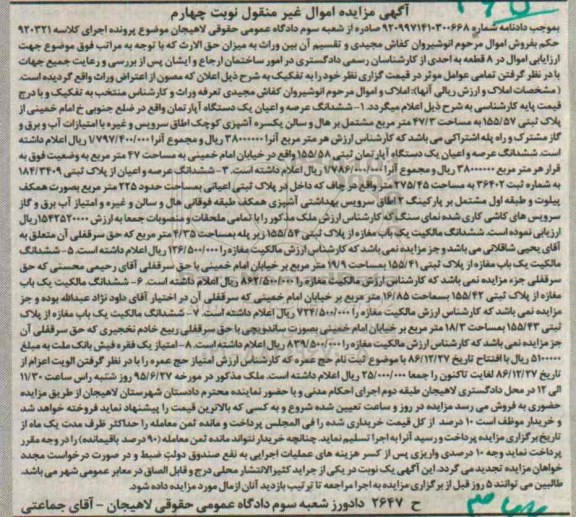 آگهی مزایده اموال غیر منقول نوبت چهارم
بموجب دادنامه شماره ۹۲۰۹۹۷۱۴۱۰۳۰۰۶۶۸ صادره از شعبه سوم دادگاه عمومی حقوقی لاهیجان موضوع پرونده اجرای کلاسه ۹۲۰۳۲۱
حکم بفروش اموال مرحوم انوشیروان کفاش مجیدی و تقسیم آن بین وراث به میزان حق الارث که با توجه به مراتب فوق موضوع جهت
ارزیابی اموال در ۸ قطعه به احدی از کارشناسان رسمی دادگستری در امور ساختمان ارجاع و ایشان پس از بررسی و رعایت جمیع جهات
با در نظر گرفتن تمامی عوامل موثر در قیمت گزاری نظر خود را به تفکیک به شرح ذیل اعلان که مصون از اعتراض وراث واقع گردیده است.
( مشخصات املاک و ارزش ریالی آنها): املاک و اموال مرحوم انوشیروان کفاش مجیدی تعرفه وراث و کارشناس منتخب به تفکیک و با درج
قیمت پایه کارشناسی به شرح ذیل اعلام میگردد. ۱-ششدانگ عرصه و اعیان یک دستگاه آپارتمان واقع در ضلع جنوبی خ امام خمینی از
پلاک ثبتی ۱۵۵/۵۷ به مساحت ۴۷/۳ متر مربع مشتمل بر هال و سالن یکسره آشپزی کوچک اطاق سرویس و غیره با امتیازات آب و برق و
گاز مشترک و راه پله اشتراکی می باشد که کارشناس ارزش هر متر مربع آنرا ۳۸۰۰۰۰۰۰ ریال و مجموع آنرا ۱/۷۹۷/۴۰۰/۰۰۰ ریال اعلام داشته
است. ششدانگ عرصه و اعیان یک دستگاه آپارتمان ثبتی ۱۵۵/۵۸ واقع در خیابان امام خمینی به مساحت ۴۷ متر مربع به وضعیت فوق به
قرار هر متر مربع ۳۸۰۰۰۰۰۰ ریال و مجموع آنرا ۱/۷۸۶/۰۰۰/۰۰۰ ریال اعلام داشته است. ۳-ششدانگ عرصه و اعیان از پلاک ثبتی ۱۸۴/۳۴۰۹
به شماره ثبت ۳۶۴۰۲ به مساحت ۲۷۵/۴۵ متر واقع در چاف که داخل در پلاک ثبتی اعیانی بمساحت حدود ۲۲۵ متر مربع بصورت همکف
پیلوت و طبقه اول مشتمل بر پارکینگ ۲ اطاق سرویس بهداشتی آشپزی همکف طبقه فوقانی هال و سالن و غیره و امتیاز آب برق و گاز
سرویس های کاشی کاری شده نمای سنگ که کارشناس ارزش ملک مذکور را با تمامی ملحقات و منصوبات جمعا به ارزش ۱۵۴۲۵۲۰۰۰۰ ریال
ارزیابی نموده است. ششدانگ مالکیت یک باب مغازه از پلاک ثبتی ۱۵۵/۵۴ زیر پله بمساحت ۴/۳۵ متر مربع که حق سرقفلی آن متعلق به
آقای یحیی شاقلانی می باشد و جز مزایده نمی باشد که کارشناس ارزش مالکیت مغازه را ۱۳۶/۵۰۰/۰۰۰ ریال اعلام داشته است. ۵-ششدانگ
مالکیت یک باب مغازه از پلاک ثبتی ۱۵۵/۴۱ بمساحت ۱۹/۹ متر مربع بر خیابان امام خمینی با حق سرقفلی آقای رحیمی محسنی که حق
سرقفلی جزء مزایده نمی باشد که کارشناس ارزش مالکیت مغازه را ۸۶۲/۵۰۰/۰۰۰ ریال اعلام داشته است. ۶-ششدانگ مالکیت یک باب
مغازه از پلاک ثبتی ۱۵۵/۴۲ بمساحت ۱۶/۸۵ متر مربع بر خیابان امام خمینی که سرقفلی آن در اختیار آقای داود نژاد عبداله بوده و جز
مزایده نمی باشد که کارشناس ارزش مالکیت مغازه را ۷۲۴/۵۰۰/۰۰۰ ریال اعلام داشته است. ۷-ششدانگ مالکیت یک باب مغازه از پلاک
ثبتی ۱۵۵/۴۳ بمساحت ۱۸/۳ متر مربع بر خیابان امام خمینی بصورت ساندویچی با حق سرقفلی ربیع خادم نخجیری که حق سرقفلی آن
جز مزایده نمی باشد که کارشناس ارزش مالکیت مغازه را ۸۳۹/۵۰۰/۰۰۰ ریال اعلام داشته است. ۸-امتیاز یک فقره فیش بانک ملت به مبلغ
۵۱۰۰۰۰۰ ریال با افتتاح تاریخ ۸۶/۱۲/۲۷ با موضوع ثبت نام حج عمره که کارشناس ارزش امتیاز حج عمره را با در نظر گرفتن الویت اعزام از
تاریخ ۸۶/۱۲/۲۷ لغایت تاکنون را جمعا ۲۵/۰۰۰/۰۰۰ ریال اعلام داشته است. ملک مذکور در مورخه ۹۵/۶/۲۷ روز شنبه راس ساعت ۱۱/۳۰
الی ۱۲ در محل دادگستری لاهیجان طبقه دوم اجرای احکام مدنی و با حضور نماینده محترم دادستان شهرستان لاهیجان از طریق مزایده
حضوری به فروش می رسد مزایده در روز و ساعت تعیین شده شروع و به کسی که بالاترین قیمت را پیشنهاد نماید فروخته خواهد شد
و خریدار موظف است ۱۰ درصد از کل قیمت خریداری شده را فی المجلس پرداخت و مانده ثمن معامله را حداکثر ظرف مدت یک ماه از
تاریخ برگزاری مزایده پرداخت و رسید آنرا به اجرا تسلیم نماید. چنانچه خریدار نتواند مانده ثمن معامله (۹۰ درصد باقیمانده) را در وجه مقرر
پرداخت نماید وجه ۱۰ درصدی واریزی پس از کسر هزینه های عملیات اجرایی به نفع صندوق دولتی ضبط و در صورت درخواست مجدد
خواهان مزایده تجدید می گردد. این آگهی یک نوبت در یکی از جراید کثیرالانتشار محلی درج و قابل الصاق در معابر عمومی شهر می باشد.
طالبین می توانند ۵ روز قبل از برگزاری مزایده به اجرا مراجعه تا ترتیب بازدید آنان از مال مورد مزایده داده شود.
ح ۲۶۴۷ دادورز شعبه سوم دادگاه عمومی حقوقی لاهیجان - آقای جماعتی